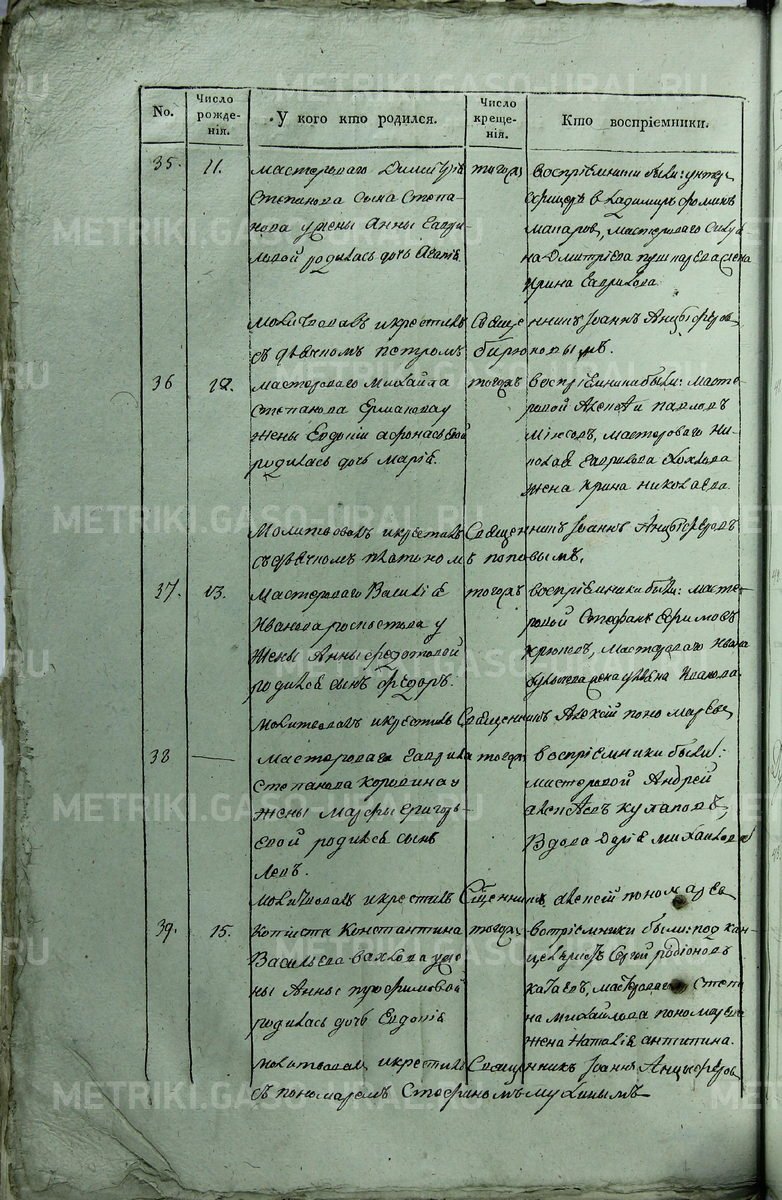 No.
Число рожденія.
У кого кто родился.
Число крещенія.
Кто воспріемники.
35. 11.
мастероваго Димитрія
Степанова сына Степа-
нова у жены Анны Гаври-
ловой родилась дочь
тогожъ
воспріемники были: унтеръ
офицеръ Владимиръ Фоминъ
Макаровъ, мастероваго
на Дмитріева жена
Ирина Гаврилова.
Молитвовалъ и крестилъ Священникъ Іоаннъ Анцыферовъ
съ дьячкомъ Петромъ Бирюковымъ.
36 12.
мастероваго Михайла
Степанова Ермакова у
жены Евдокіи Афонасьевой
родилась дочь Марія.
тогожъ
воспріемники были: масте-
ровой Алексѣй Павловъ
мастероваго Ни-
колая Гаврилова
жена Ирина Николаева.
Молитвовалъ и крестилъ Священникъ Іоаннъ Анцыферовъ
съ дьячкомъ Поповымъ.
37. 13.
Мастероваго Василія
Иванова у
жены Анны Федотовой
родился сынъ Федоръ.
тогожъ
воспріемники были: масте-
ровой Стефанъ Ефимовъ
мастероваго Ивана
жена Иванова.
молитвовалъ и крестилъ Священникъ Алексій Пономаревъ
38 —
Мастероваго Гаврила
Степанова Коровина у
жены Марфы Григорь-
евой родился сынъ
Левъ.
тогожъ
воспріемники были:
мастеровой Андрей
Алексѣевъ
вдова Дарія Михайлова
молитвовалъ и крестилъ Сщенникъ Алексій Пономаревъ
39. 15.
Копіиста Константина
Васильева у же-
ны Анны Трофимовой
родилась дочь Евдокія
тогожъ
воспріемники были: подкан-
целяристъ Сергей Родіоновъ
мастероваго Степа-
на Михайлова Пономарева
жена Наталія Антипина.
молитвовалъ и крестилъ Священникъ Іоаннъ Анцыферовъ
съ пономаремъ Стефаномъ Мухинымъ
METRIKI.GASO-URAL.RU